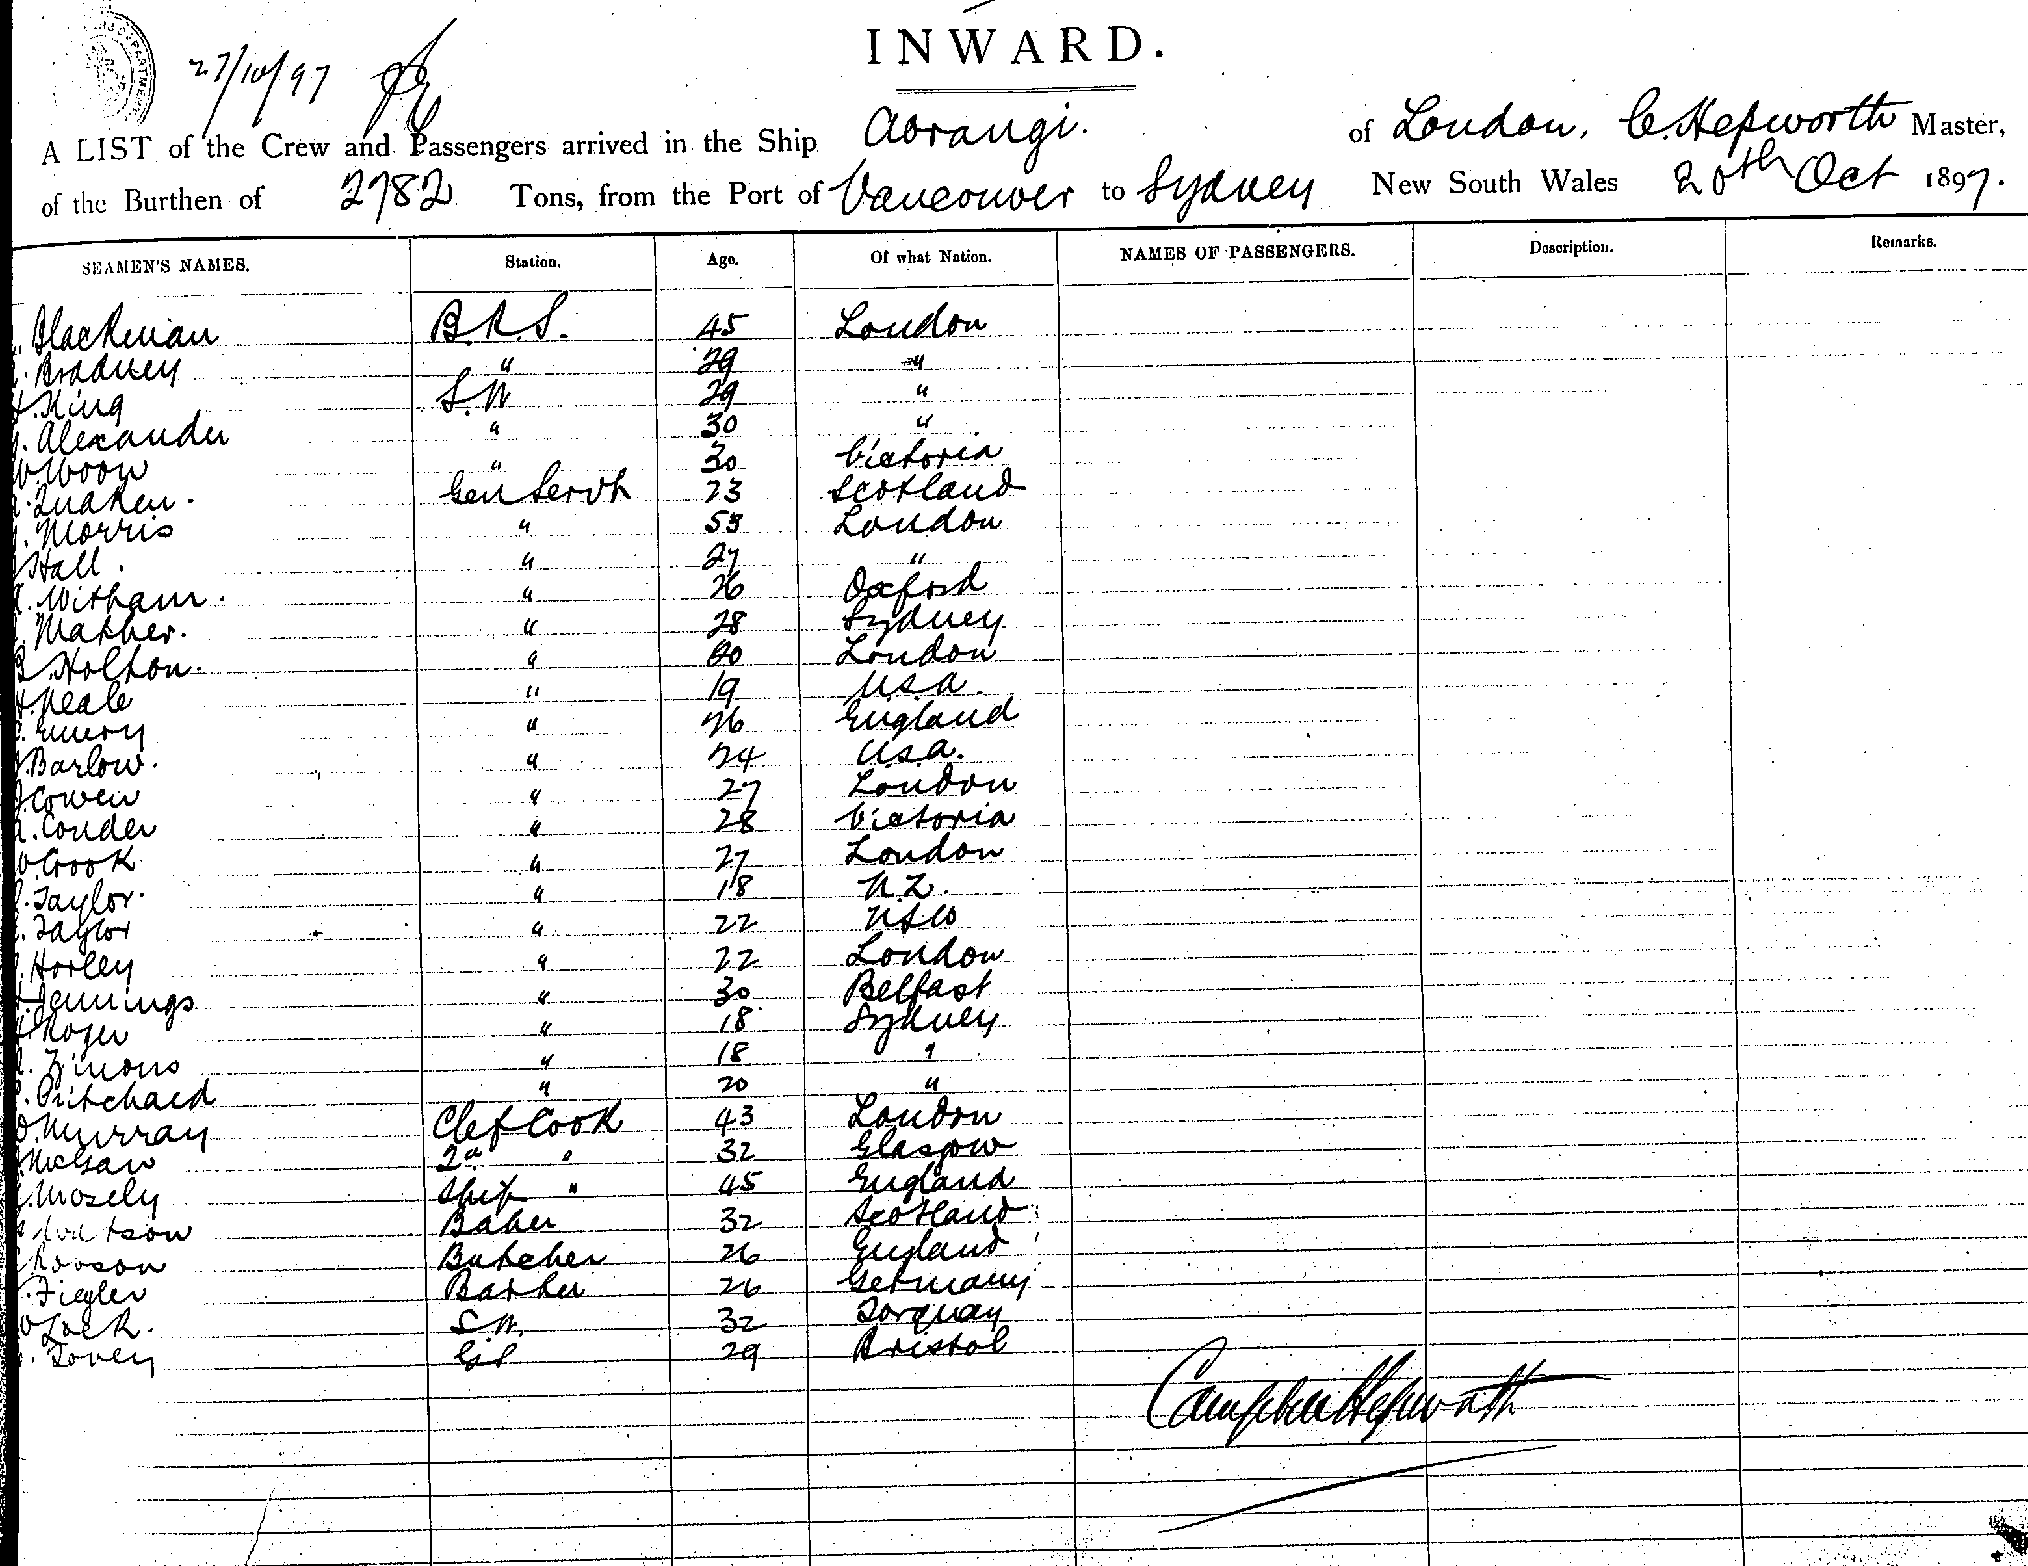 INWARD.
27/10/97
A LIST of the Crew and Passengers arrived in the Ship Aorangi. of London, C. Hepworth Master,
of the Burthen of 2782 Tons, from the Port of Vancouver to Sydney New South Wales 20th Oct 1897.
SEAMEN'S NAMES. Station. Age. Of what Nation. NAMES OF PASSENGERS. Description. Remarks.
Blackman B.R.S. 45 London
Bradney " 29 "
King S.W 29 "
Alexander " 30 "
Woon " 30 Victoria
Gen Servt 23 Scotland
Morris " 53 London
Hall. " 27 "
Witham. " 26 Oxford
Mather. " 28 Sydney
Holton. " London
Neale " 19 USA.
Emery " 26 England
Barlow. " 24 USA.
Cowen " 27 London
Conder " 28 Victoria
Crook " 27 London
Taylor. " 18 N.Z.
Taylor " 22 NSW
Horley " 22 London
Jennings " 30 Belfast
Roger " 18 Sydney
" 18 "
Pritchard " 20 "
Murray Chef Cook 43 London
McGaw 2nd " 32 Glasgow
Mosely Ship " 45 England
Baker 32 Scotland
Robson Butcher 26 England
Ziegler Barber 26 Germany
Lock. S.W. 32 Torquay
Tovey G.S 29 Bristol
Campbell Hepworth